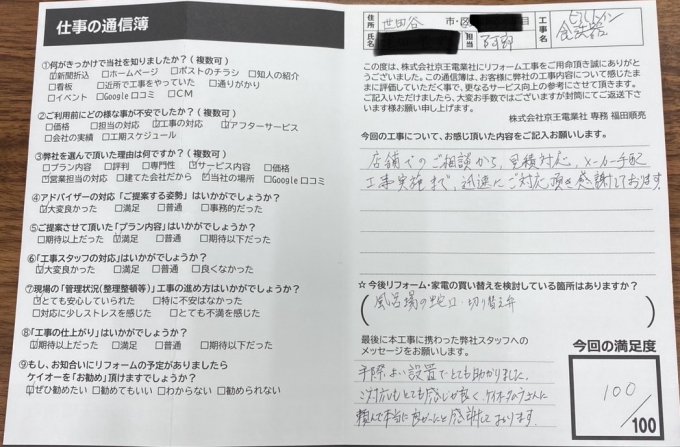 仕事の通信簿
①何がきっかけで当社を知りましたか？（複数可）
☑新聞折込 □ホームページ □ポストのチラシ □知人の紹介
□看板 □近所で工事をやっていた □通りがかり
□イベント □Google口コミ □CM
②ご利用前にどの様な事が不安でしたか？（複数可）
□価格 □担当の対応 ☑工事の対応 ☑アフターサービス
□会社の実績 □工期スケジュール
③弊社を選んで頂いた理由は何ですか？（複数可）
□プラン内容 □評判 □専門性 ☑サービス内容 □価格
☑営業担当の対応 □建てた会社だから ☑当社の場所 □Google口コミ
④アドバイザーの対応「ご提案する姿勢」はいかがでしょうか？
☑大変良かった □満足 □普通 □事務的だった
⑤ご提案させて頂いた「プラン内容」はいかがでしょうか？
□期待以上だった ☑満足 □普通 □期待以下だった
⑥「工事スタッフの対応」はいかがでしょうか？
☑大変良かった □満足 □普通 □良くなかった
⑦現場の「管理状況(整理整頓等)」工事の進め方はいかがでしょうか？
☑とても安心していられた □特に不安はなかった
□対応に少しストレスを感じた □とても不満を感じた
⑧「工事の仕上がり」はいかがでしょうか？
☑期待以上だった □満足 □普通 □期待以下だった
⑨もし、お知合いにリフォームの予定がありましたら
ケイオーを「お勧め」頂けますでしょうか？
☑ぜひ勧めたい □勧めてもいい □わからない □勧められない
住所 世田谷 市・区 目
氏名 担当 阿野
工事名 ビルトイン
食洗器
この度は、株式会社京王電業社にリフォーム工事をご用命頂き誠にありがと
うございました。この通信簿は、お客様に弊社の工事内容について感じたま
まに評価していただく事で、更なるサービス向上の参考にさせて頂きます。
ご記入いただけましたら、大変お手数ではございますが封筒にてご返送下さ
います様お願い申し上げます。
株式会社京王電業社 専務 福田順亮
今回の工事について、お感じ頂いた内容をご記入お願いします。
店舗でのご相談から、見積対応、メーカー手配
工事実施まで、迅速にご対応頂き感謝しております。
☆今後リフォーム・家電の買い替えを検討している箇所はありますか？
（風呂場の蛇口・切り替え弁）
最後に本工事に携わった弊社スタッフへの
メッセージをお願いします。
手際よい設置でとても助かりました。
ご対応もとても感じが良く、ケイオーさんに
頼んで本当に良かったと感謝しております。
今回の満足度
100
/100